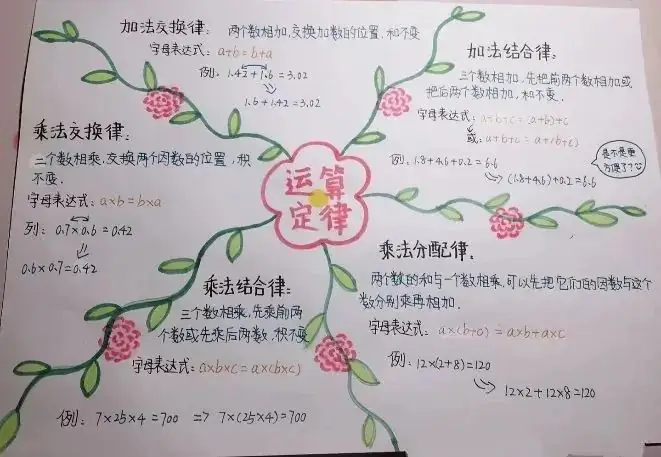 加法交换律：
两个数相加，交换加数的位置，和不变
字母表达式：a+b=b+a
例：1.42+1.6=3.02
1.6+1.42=3.02
加法结合律：
三个数相加，先把前两个数相加或
把后两个数相加，和不变。
字母表达式：a+b+c=(a+b)+c
或：a+b+c=a+(b+c)
例：1.8+4.6+0.2=6.6
(1.8+4.6)+0.2=6.6
是不是更
方便了？
乘法交换律：
二个数相乘，交换两个因数的位置，积
不变。
字母表达式：a×b=b×a
列：0.7×0.6=0.42
0.6×0.7=0.42
运算
定律
乘法结合律：
三个数相乘，先乘前两
个数或先乘后两数，积不变
字母表达式：a×b×c=a×(b×c)
例：7×25×4=700 => 7×(25×4)=700
乘法分配律：
两个数的和与一个数相乘，可以先把它们的因数与这个
数分别乘再相加。
字母表达式：a×(b+c)=a×b+a×c
例：12×(2+8)=120
12×2+12×8=120